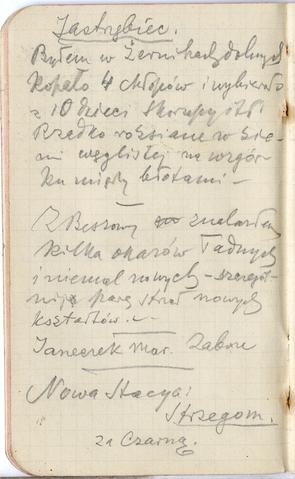 Jastrzębiec.
Byłem w Żernikach dolnych
Kopało 4 chłopów i wybierało
z 10 dzieci skorupy itd.
Rzadko rozsiane w zie-
mi węglistej na wzgór-
ku między błotami –
Z Beszowy znalazłem
kilka okazów ładnych
i niemal nowych – szczegól-
niej parę strzał nowych
kształtów. –
Janeczek Mar.
Nowa Stacya:
Strzegom.
za Czarną.